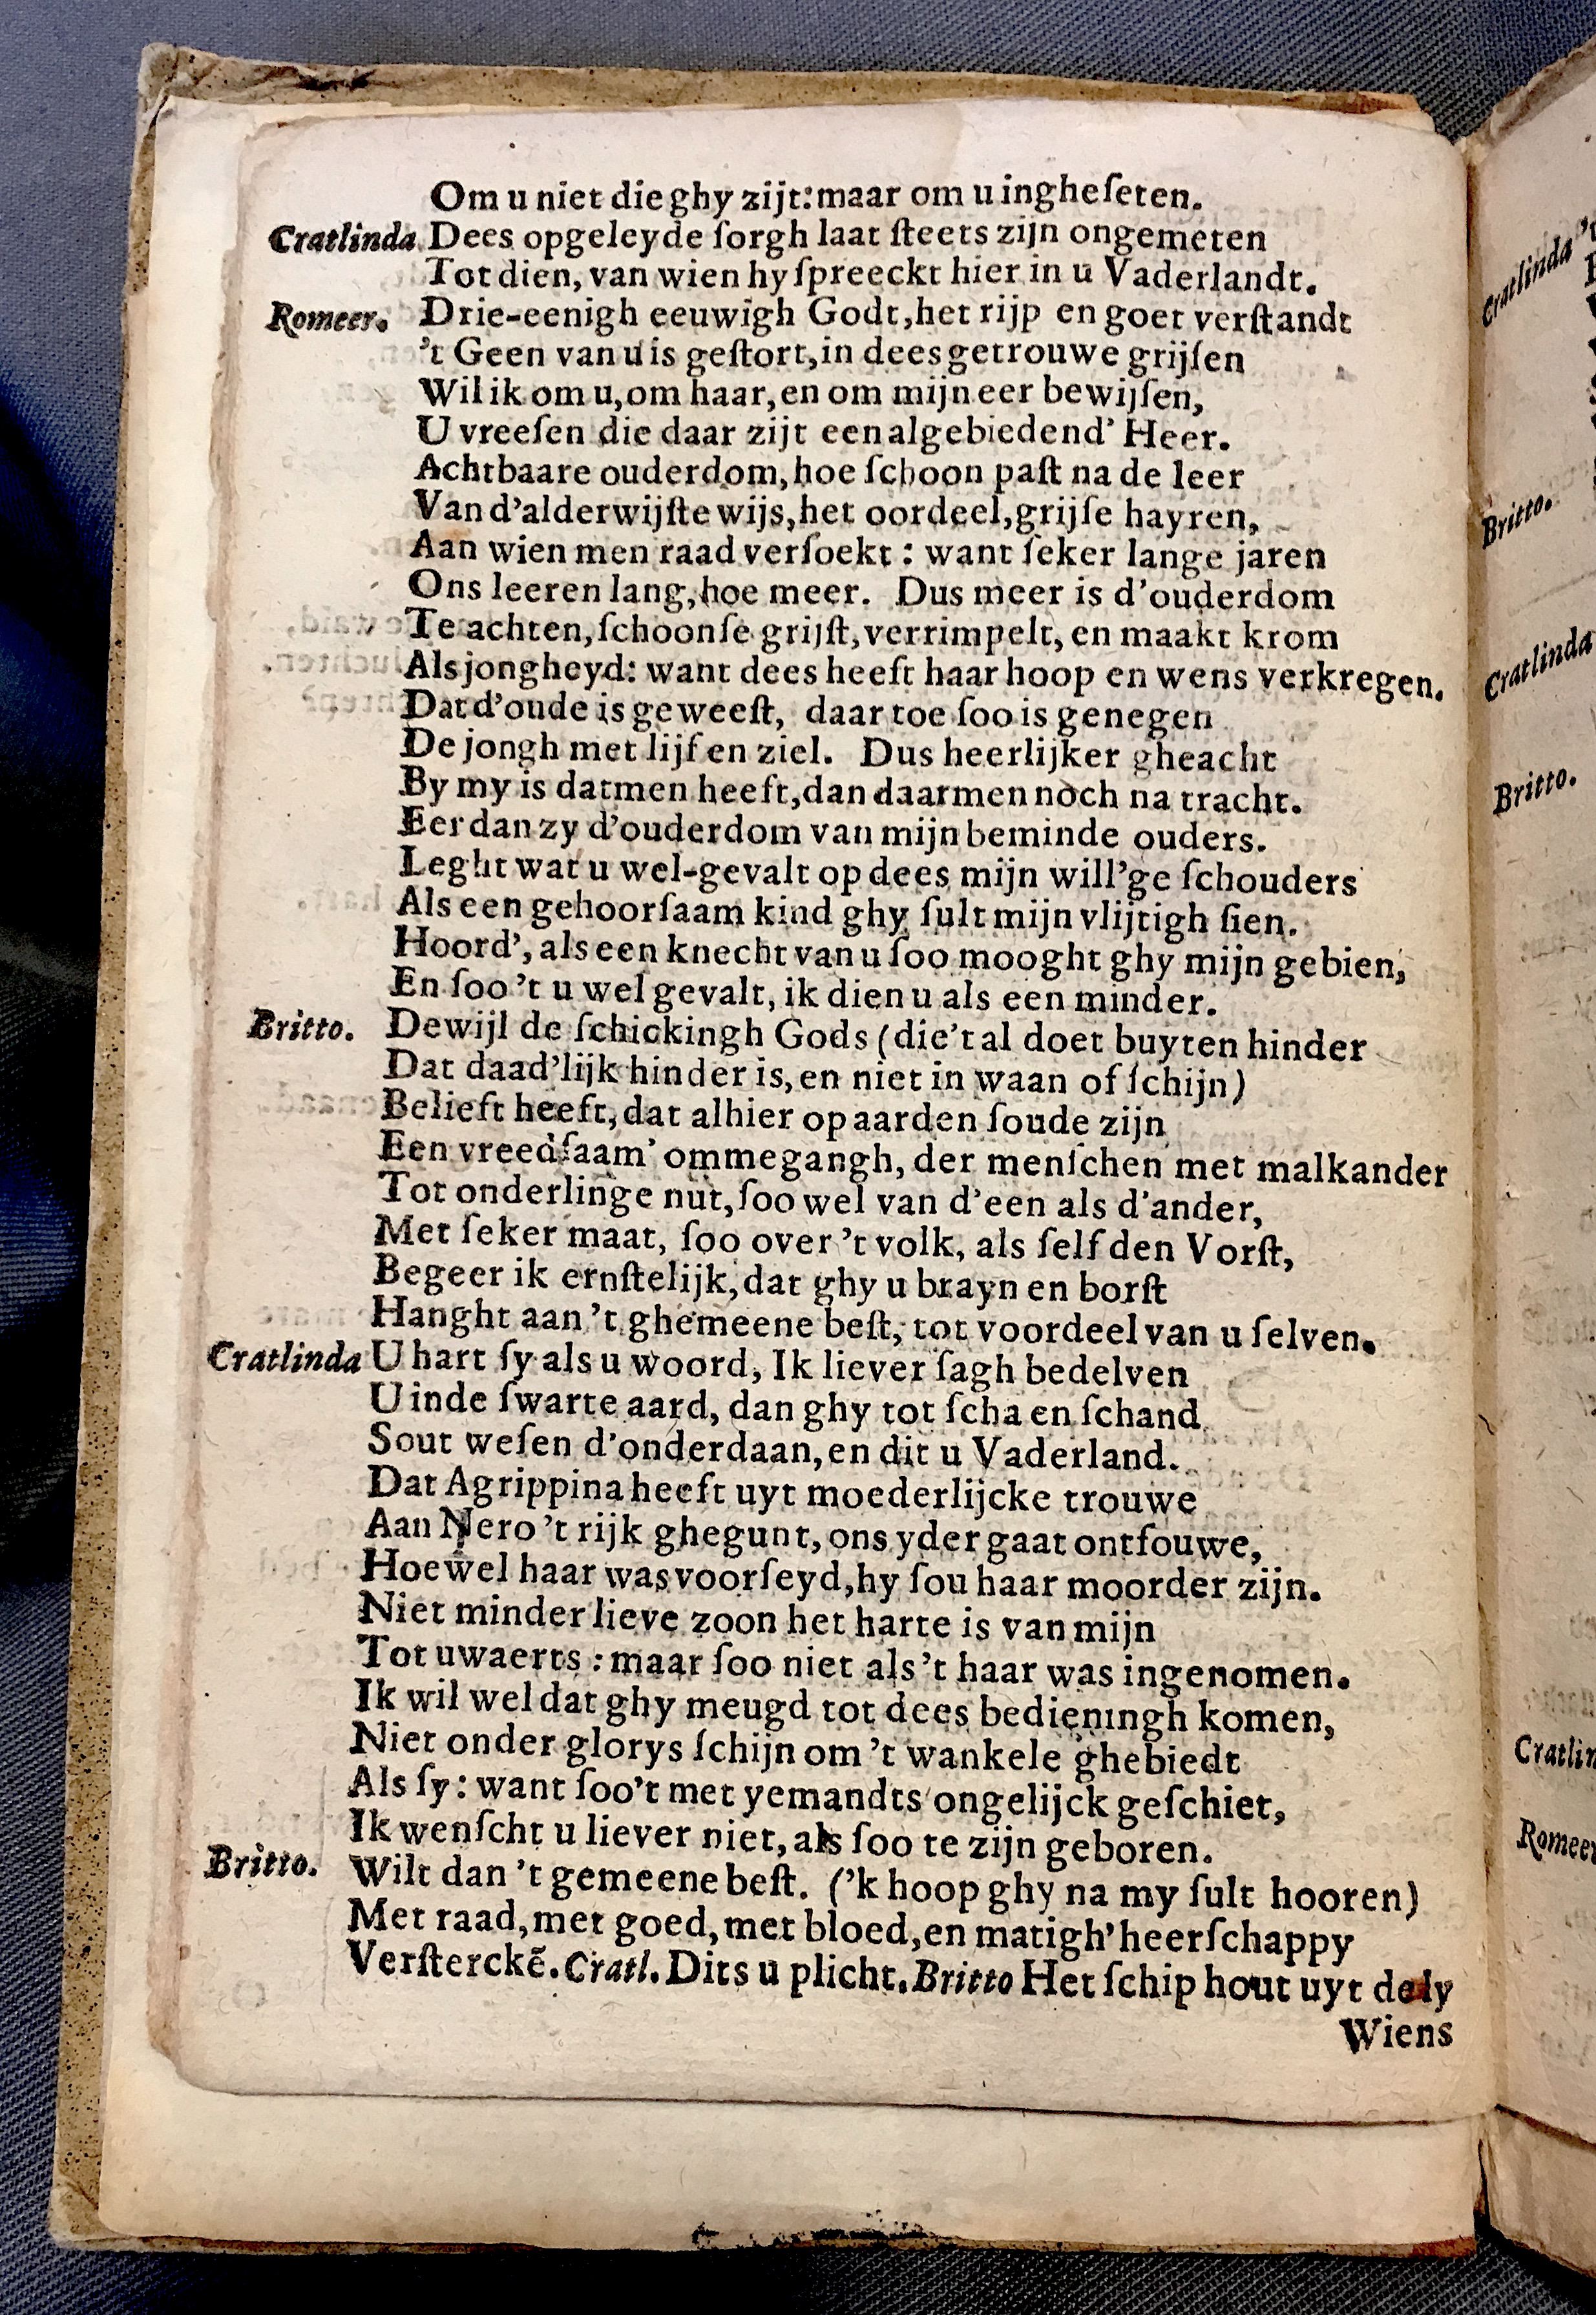 Om u niet die ghy zijt: maar om u ingheſeten.
Cratlinda Dees opgeleyde ſorgh laat ſteets zijn ongemeten
Tot dien, van wien hy ſpreeckt hier in u Vaderlandt.
Romeer. Drie-eenigh eeuwigh Godt, het rijp en goet verſtandt
't Geen van u is geſtort, in dees getrouwe grijſen
Wil ik om u, om haar, en om mijn eer bewijſen,
U vreeſen die daar zijt een algebiedend' Heer.
Achtbaare ouderdom, hoe ſchoon paſt na de leer
Van d'alderwijſte wijs, het oordeel, grijſe hayren,
Aan wien men raad verſoekt: want ſeker lange jaren
Ons leeren lang, hoe meer. Dus meer is d'ouderdom
Te achten, ſchoon ſe grijſt, verrimpelt, en maakt krom
Als jongheyd: want dees heeft haar hoop en wens verkregen.
Dat d'oude is geweeſt, daar toe ſoo is genegen
De jongh met lijf en ziel. Dus heerlijker gheacht
By my is datmen heeft, dan daarmen noch na tracht.
Eer dan zy d'ouderdom van mijn beminde ouders.
Leght wat u wel-gevalt op dees mijn will'ge ſchouders
Als een gehoorſaam kind ghy ſult mijn vlijtigh ſien.
Hoord', als een knecht van u ſoo mooght ghy mijn gebien,
En ſoo 't u wel gevalt, ik dien u als een minder.
Britto. Dewijl de ſchickingh Gods (die 't al doet buyten hinder
Dat daad'lijk hinder is, en niet in waan of ſchijn)
Belieft heeft, dat alhier op aarden ſoude zijn
Een vreedſaam' ommegangh, der menſchen met malkander
Tot onderlinge nut, ſoo wel van d'een als d'ander,
Met ſeker maat, ſoo over 't volk, als ſelf den Vorſt,
Begeer ik ernſtelijk, dat ghy u brayn en borſt
Hanght aan 't ghemeene beſt, tot voordeel van u ſelven.
Cratlinda U hart ſy als u woord, Ik liever ſagh bedelven
U inde ſwarte aard, dan ghy tot ſcha en ſchand
Sout weſen d'onderdaan, en dit u Vaderland.
Dat Agrippina heeft uyt moederlijcke trouwe
Aan Nero 't rijk ghegunt, ons yder gaat ontfouwe,
Hoewel haar was voorſeyd, hy ſou haar moorder zijn.
Niet minder lieve zoon het harte is van mijn
Tot uwaerts: maar ſoo niet als 't haar was ingenomen.
Ik wil wel dat ghy meugd tot dees bedieningh komen,
Niet onder glorys ſchijn om 't wankele ghebiedt
Als ſy: want ſoo't met yemandts ongelijck geſchiet,
Ik wenſcht u liever niet, als ſoo te zijn geboren.
Britto. Wilt dan 't gemeene beſt. ('k hoop ghy na my ſult hooren)
Met raad, met goed, met bloed, en matigh' heerſchappy
Verſterckẽ. Cratl. Dits u plicht. Britto Het ſchip hout uyt de ly
Wiens
Cratlinda
Britto.
Cratlinda
Britto.
Cratlin
Romeer